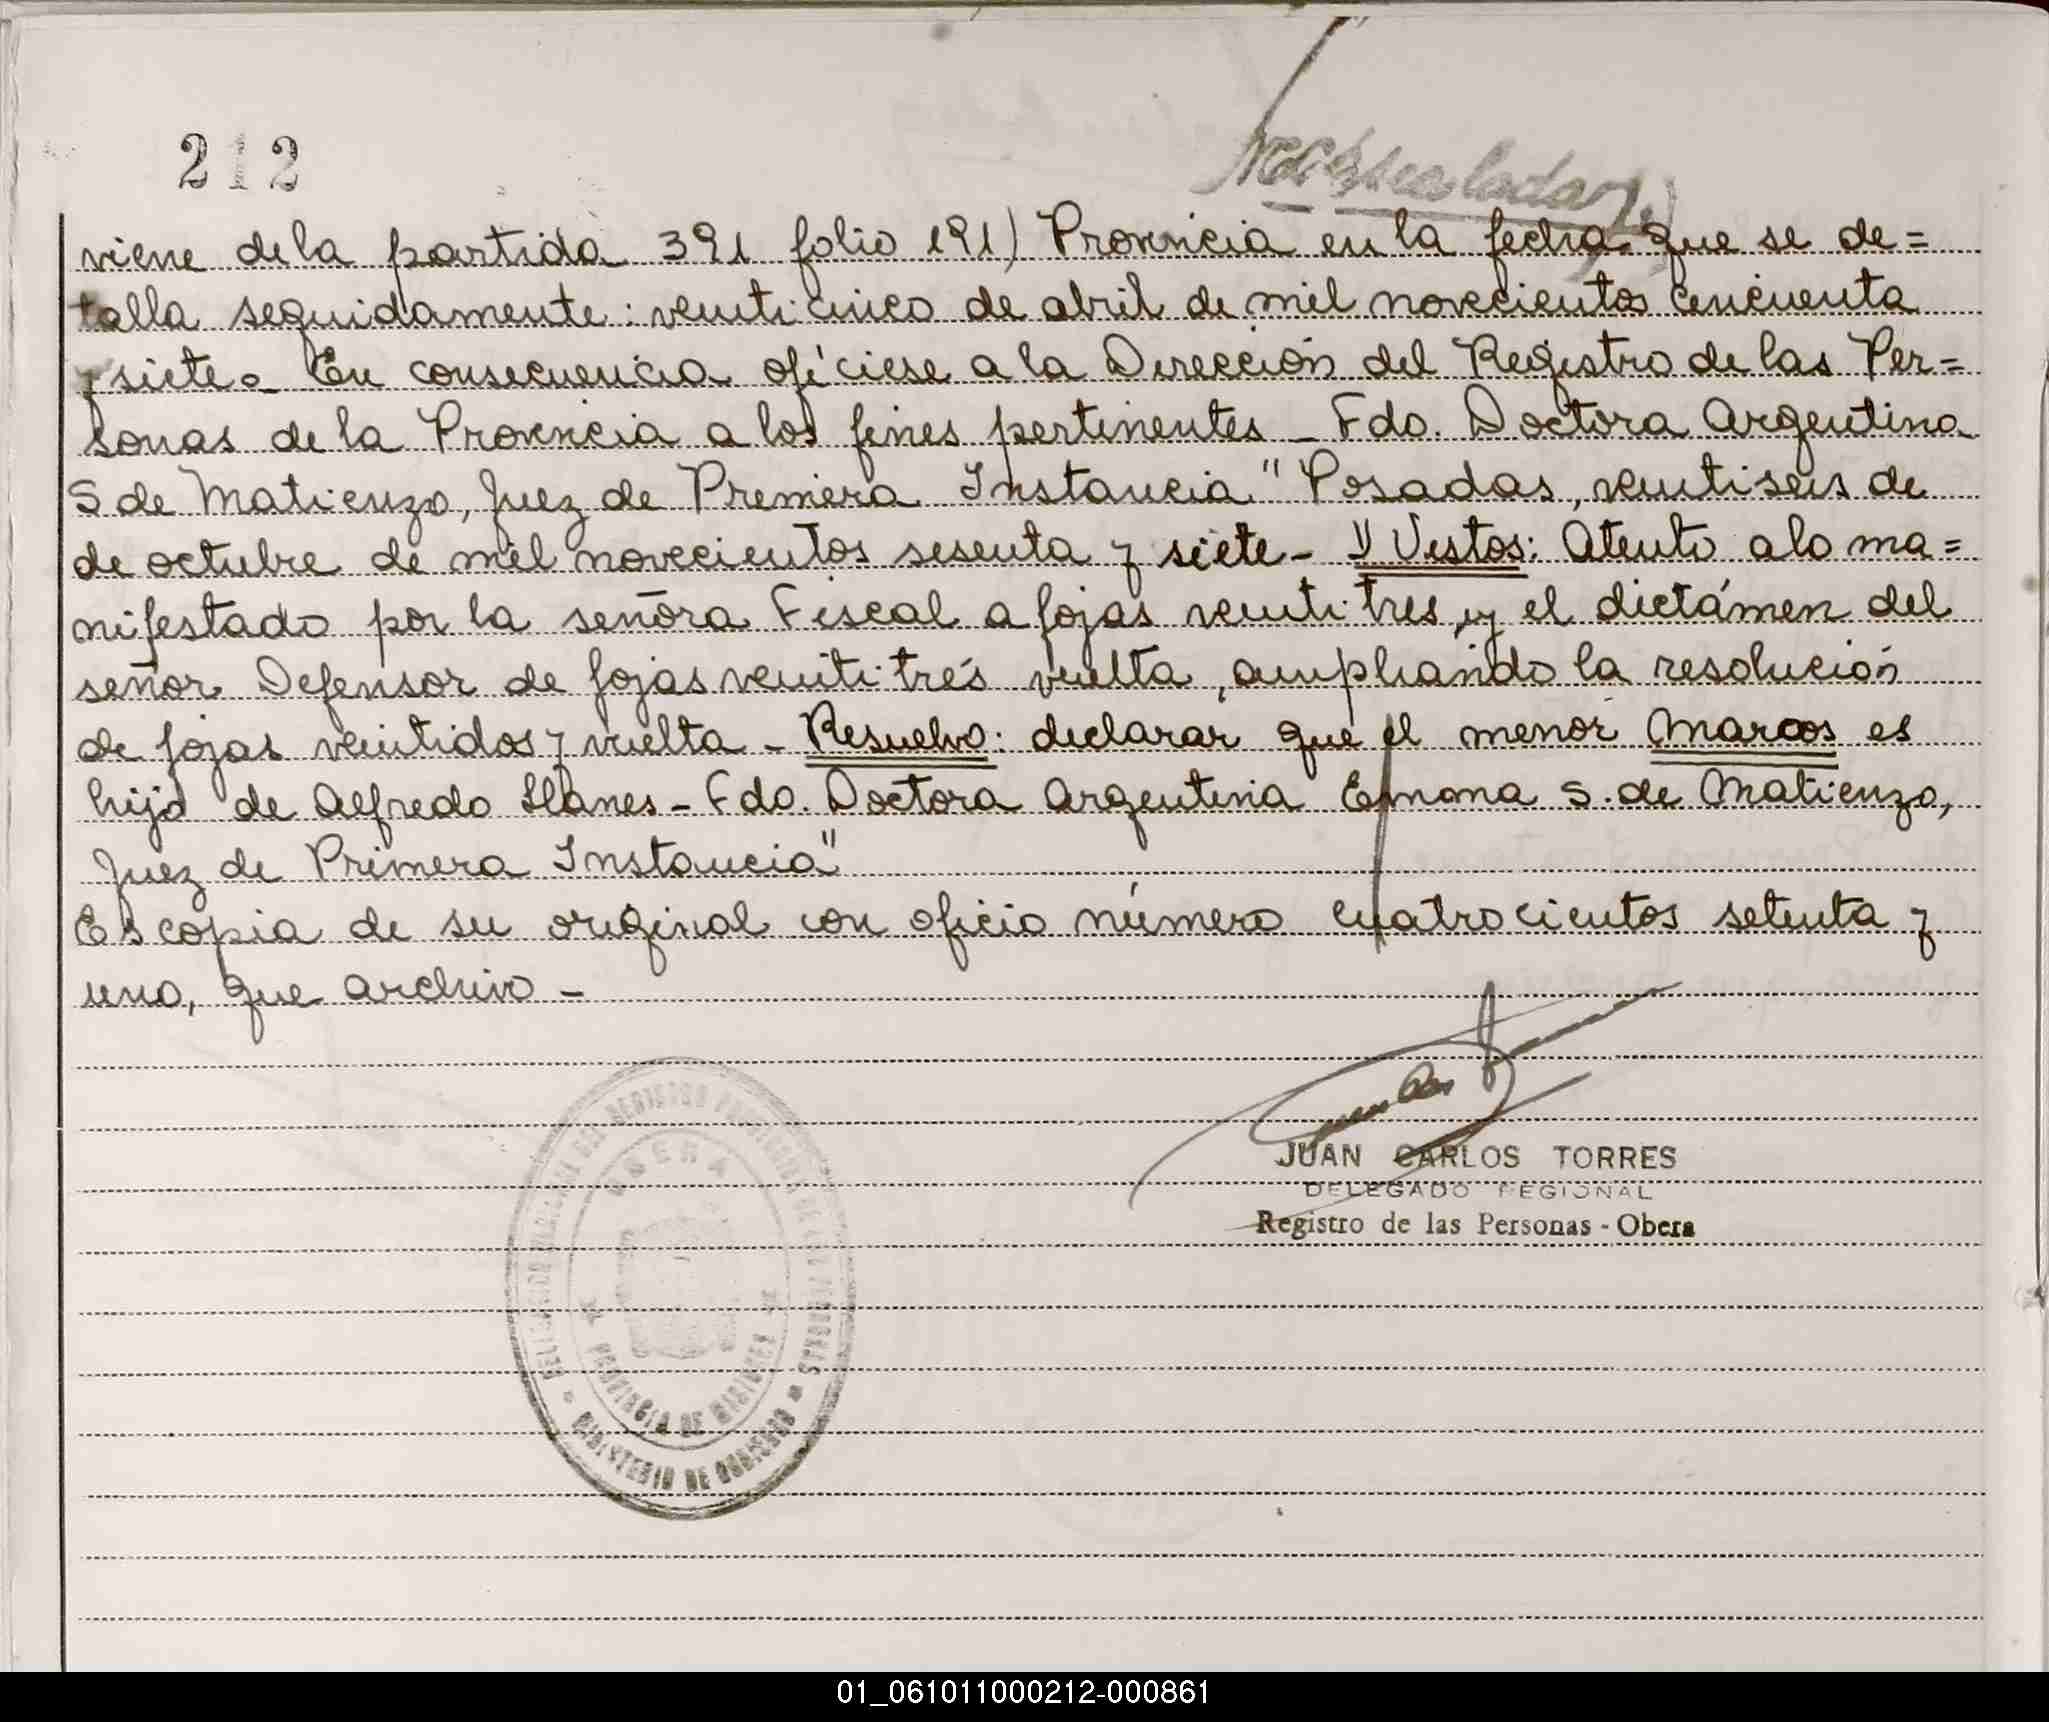 212
viene de la partida 391 folio 191) Provincia en la fecha que se de=
talla seguidamente: veinticinco de abril de mil novecientos cincuenta
y siete._ En consecuencia ofíciese a la Dirección del Registro de las Per=
sonas de la Provincia a los fines pertinentes _ Fdo. Doctora Argentina
S de Matienzo, Juez de Primera Instancia" Posadas, veintiseis de
de octubre de mil novecientos sesenta y siete - Y Vistos: Atento a lo ma=
nifestado por la señora Fiscal a fojas veintitres, y el dictámen del
señor Defensor de fojas veintitrés vuelta, ampliando la resolución
de fojas veintidos y vuelta - Resuelvo: declarar que el menor Marcos es
hijo de Alfredo Llanes - Fdo. Doctora Argentina Emnona S. de Matienzo,
Juez de Primera Instancia"
Es copia de su original con oficio número cuatrocientos setenta y
uno, que archivo -
JUAN CARLOS TORRES
DELEGADO REGIONAL
Registro de las Personas - Obera
REGISTRO PROVINCIAL DE LAS PERSONAS
OBERA
PROVINCIA DE MISIONES
MINISTERIO DE GOBIERNO
01_061011000212-000861